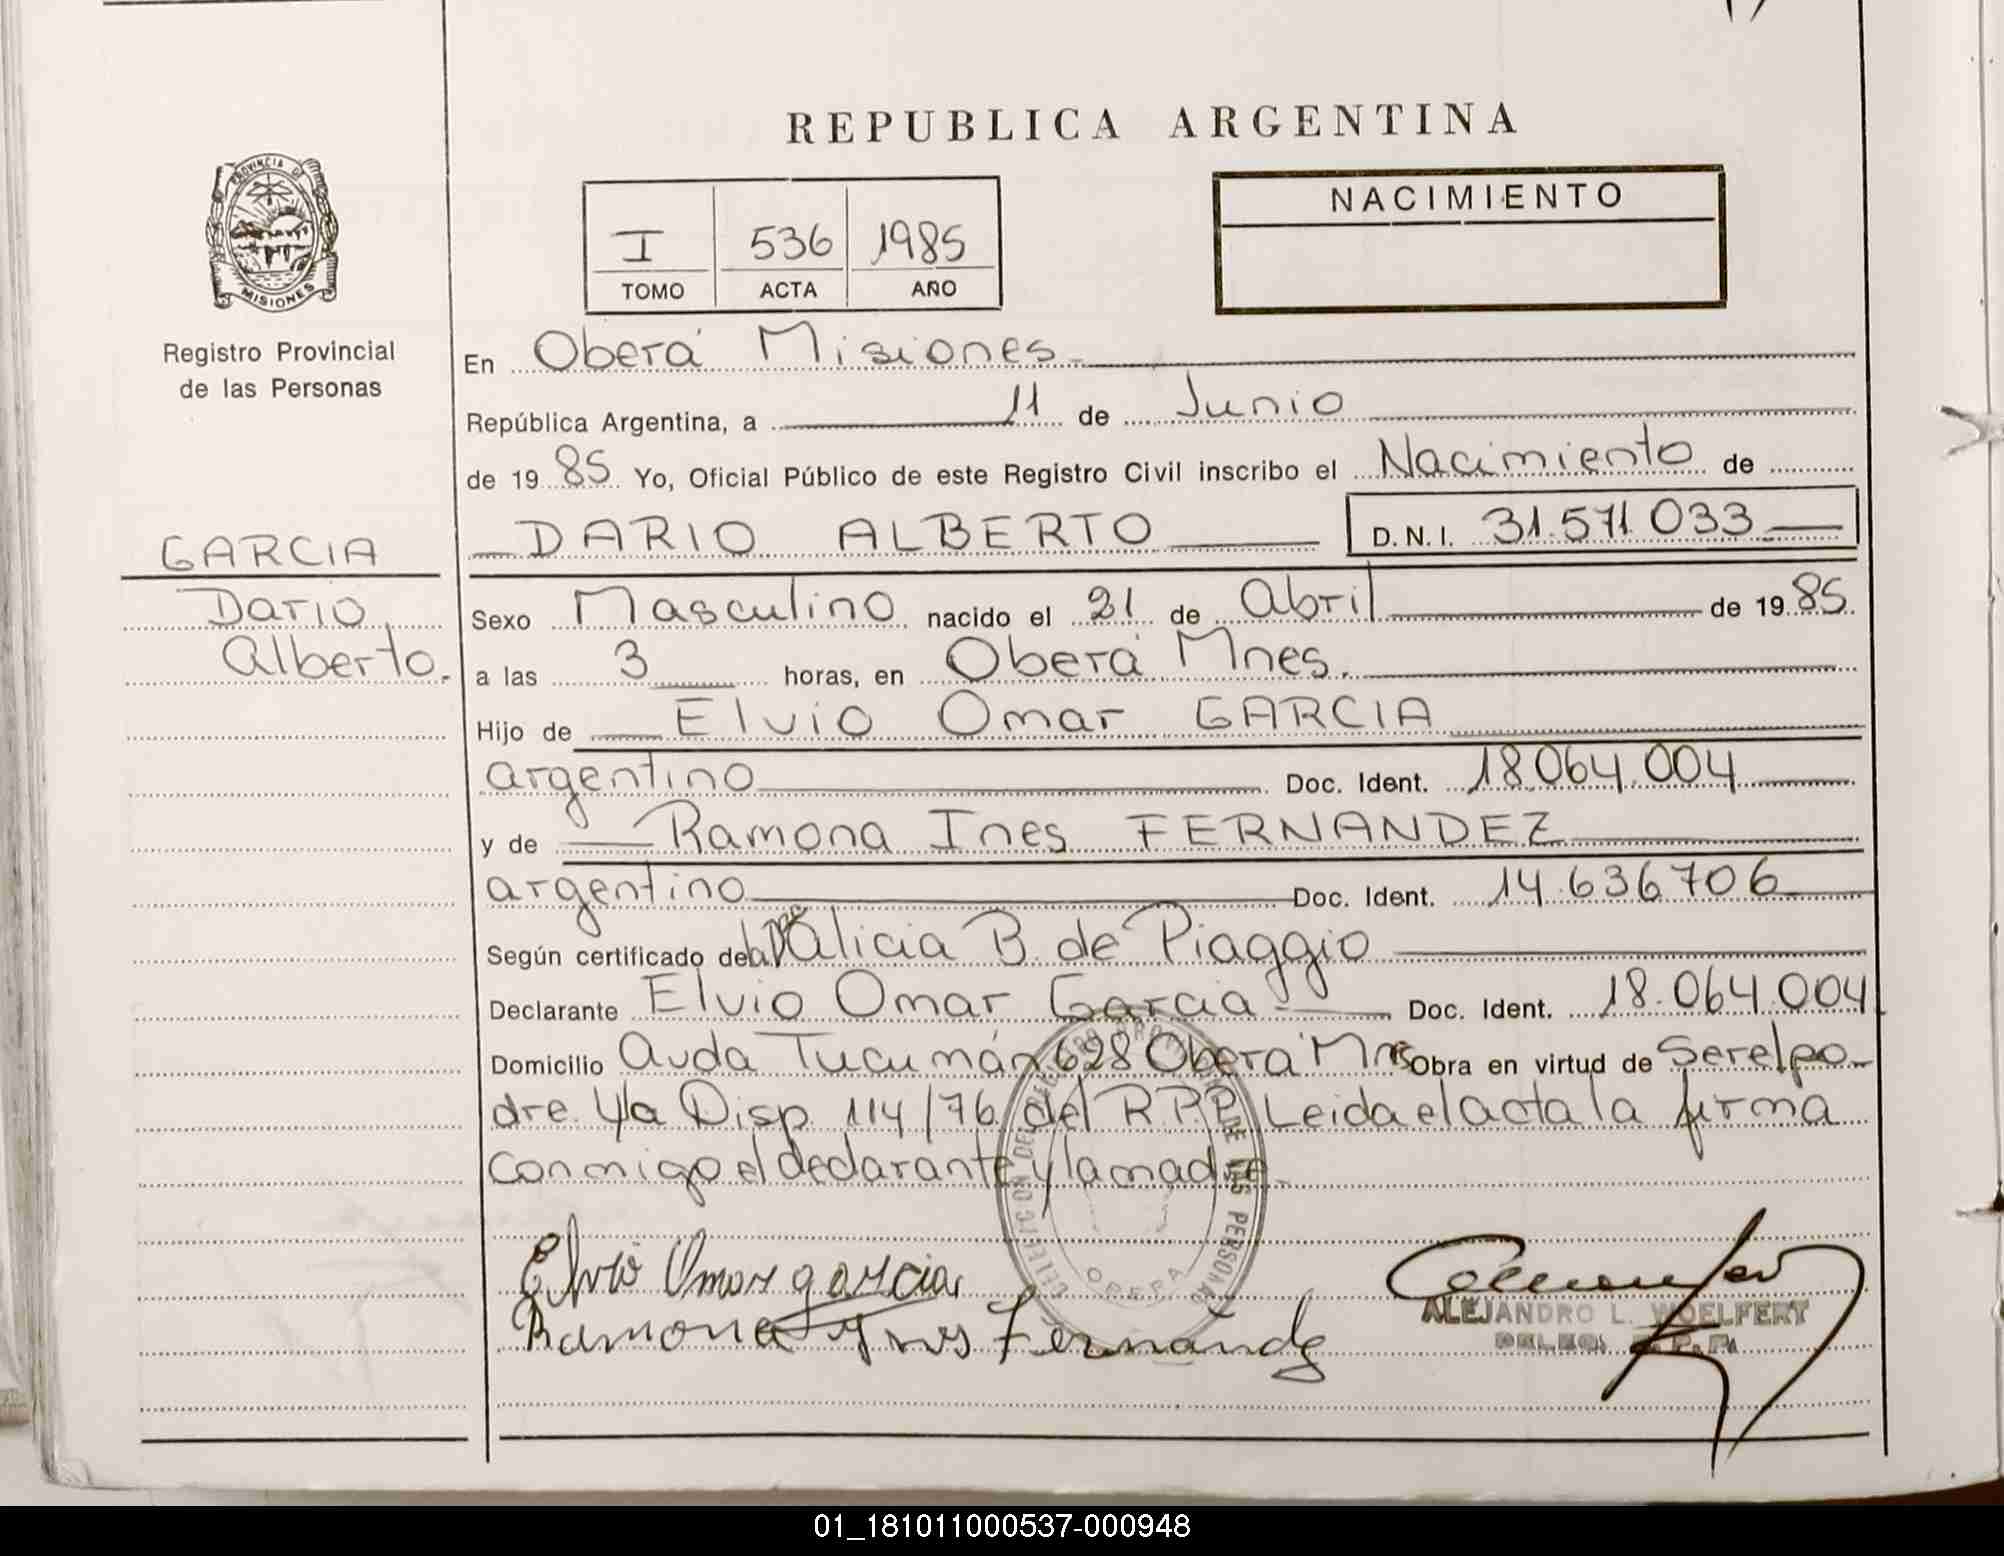 REPUBLICA ARGENTINA
PROVINCIA DE
MISIONES
Registro Provincial
de las Personas
NACIMIENTO
I 536 1985
TOMO ACTA AÑO
En Oberá Misiones
República Argentina, a 11 de Junio
de 1985 Yo, Oficial Público de este Registro Civil inscribo el Nacimiento de
GARCIA
Dario
Alberto.
DARIO ALBERTO D.N.I. 31.571.033
Sexo Masculino nacido el 21 de Abril de 1985.
a las 3 horas, en Oberá Mnes.
Hijo de Elvio Omar GARCIA
argentino Doc. Ident. 18.064.004
y de Ramona Ines FERNANDEZ
argentino Doc. Ident. 14.636.706
Según certificado de la Dra Alicia B. de Piaggio
Declarante Elvio Omar Garcia Doc. Ident. 18.064.004
Domicilio Avda Tucumán 628 Oberá Mnes Obra en virtud de Ser el pa-
dre y/a Disp. 114/76 del R.P.P. Leida el acta la firma
conmigo el declarante y la madre.
Elvio Omar garcia
Ramona Ines Fernandez
ALEJANDRO L. WOELFERT
DELEG. R.P.P.
OBERA
01_181011000537-000948